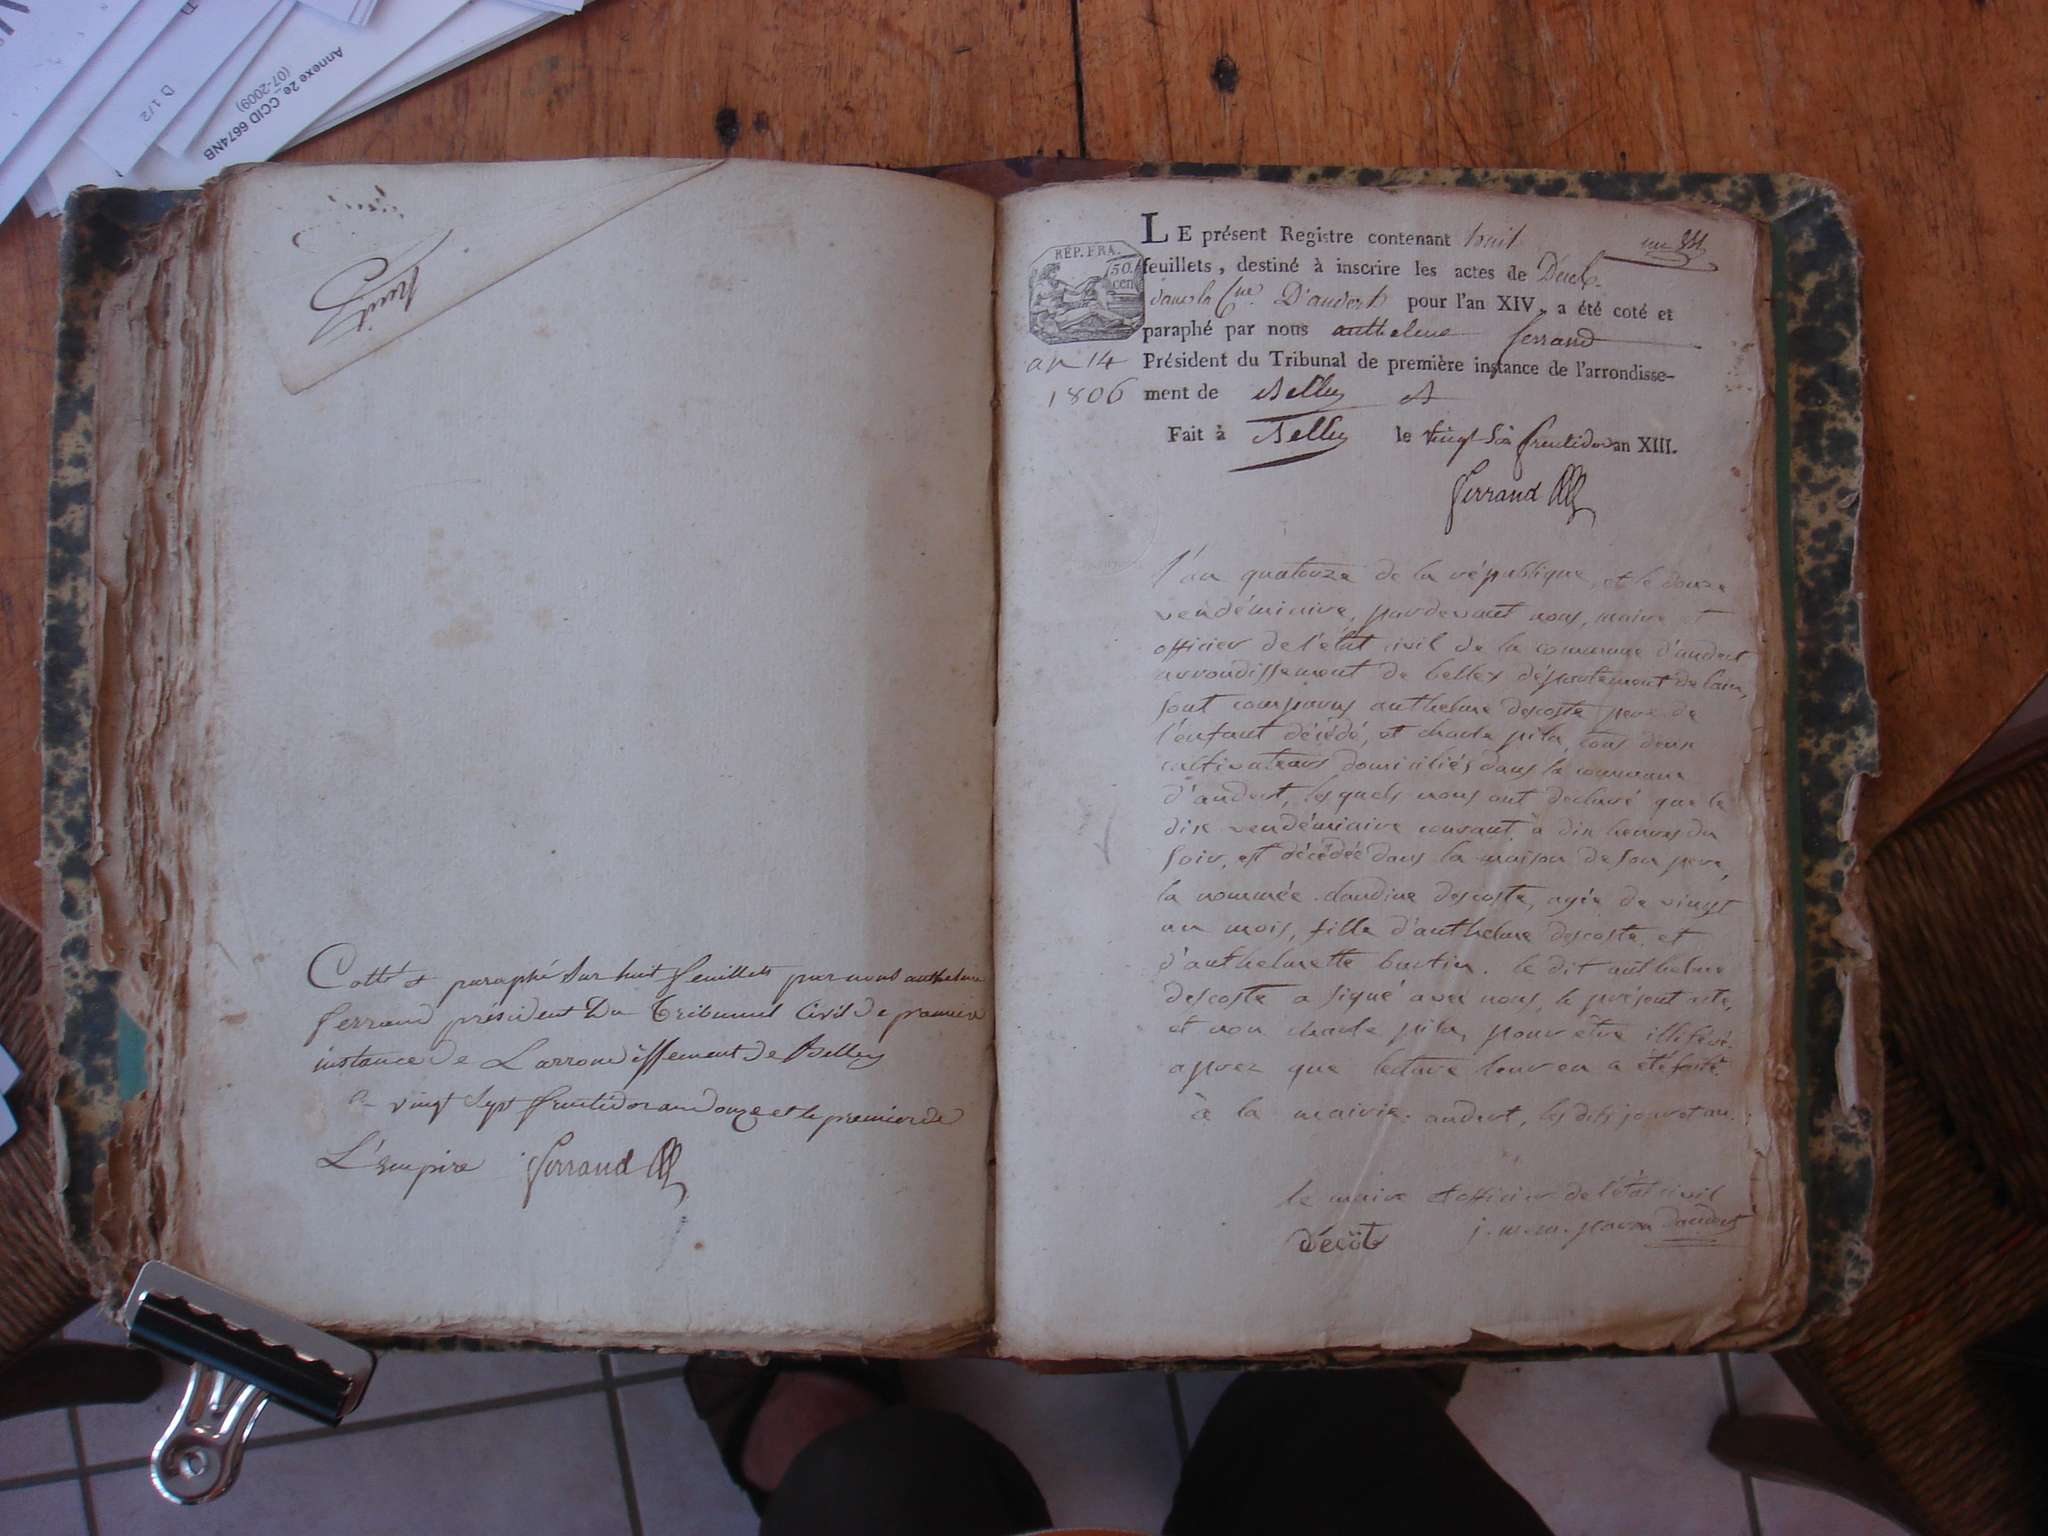 Annexe 2e_CCID 6674NB
(07-2009)
D 1/2
huit
Cotté et paraphé Sur huit feuillets par nous anthelme
ferrand président Du Tribunal Civil de premiere
instance de L'arrondissement de Belley
le vingt Sept fructidor an Douze et le premier de
L'Empire ferrand
REP. FRA.
50.
cen
an 14
1806
LE présent Registre contenant huit
un
feuillets, destiné à inscrire les actes de Décès
dans la Cne. D'andert pour l'an XIV, a été coté et
paraphé par nous anthelme ferrand
Président du Tribunal de première instance de l'arrondisse-
ment de Belley
Fait à Belley le vingt Six fructidor an XIII.
ferrand
l'an quatorze de la république, et le douze
vendémiaire, pardevant nous, maire et
officier de l'état civil de la commune d'andert
arrondissement de belley département de l'ain,
sont comparus anthelme descoste pere de
l'enfant décédé, et charle pila, tous deux
cultivateurs domiciliés dans la commune
d'andert, lesquels nous ont declaré que le
dix vendémiaire courant, à dix heures du
soir, est décédée dans la maison de son pere,
la nommée claudine descoste, agée de vingt
un mois, fille d'anthelme descoste, et
d'anthelmette burtin. le dit anthelme
descoste a signé avec nous, le présent acte,
et non charle pila, pour être illitéré.
aprez que lecture leur en a été faite.
à la mairie. andert, les dits jour et an.
le maire et officier de l'état civil
décôte j. m. m. d'andert